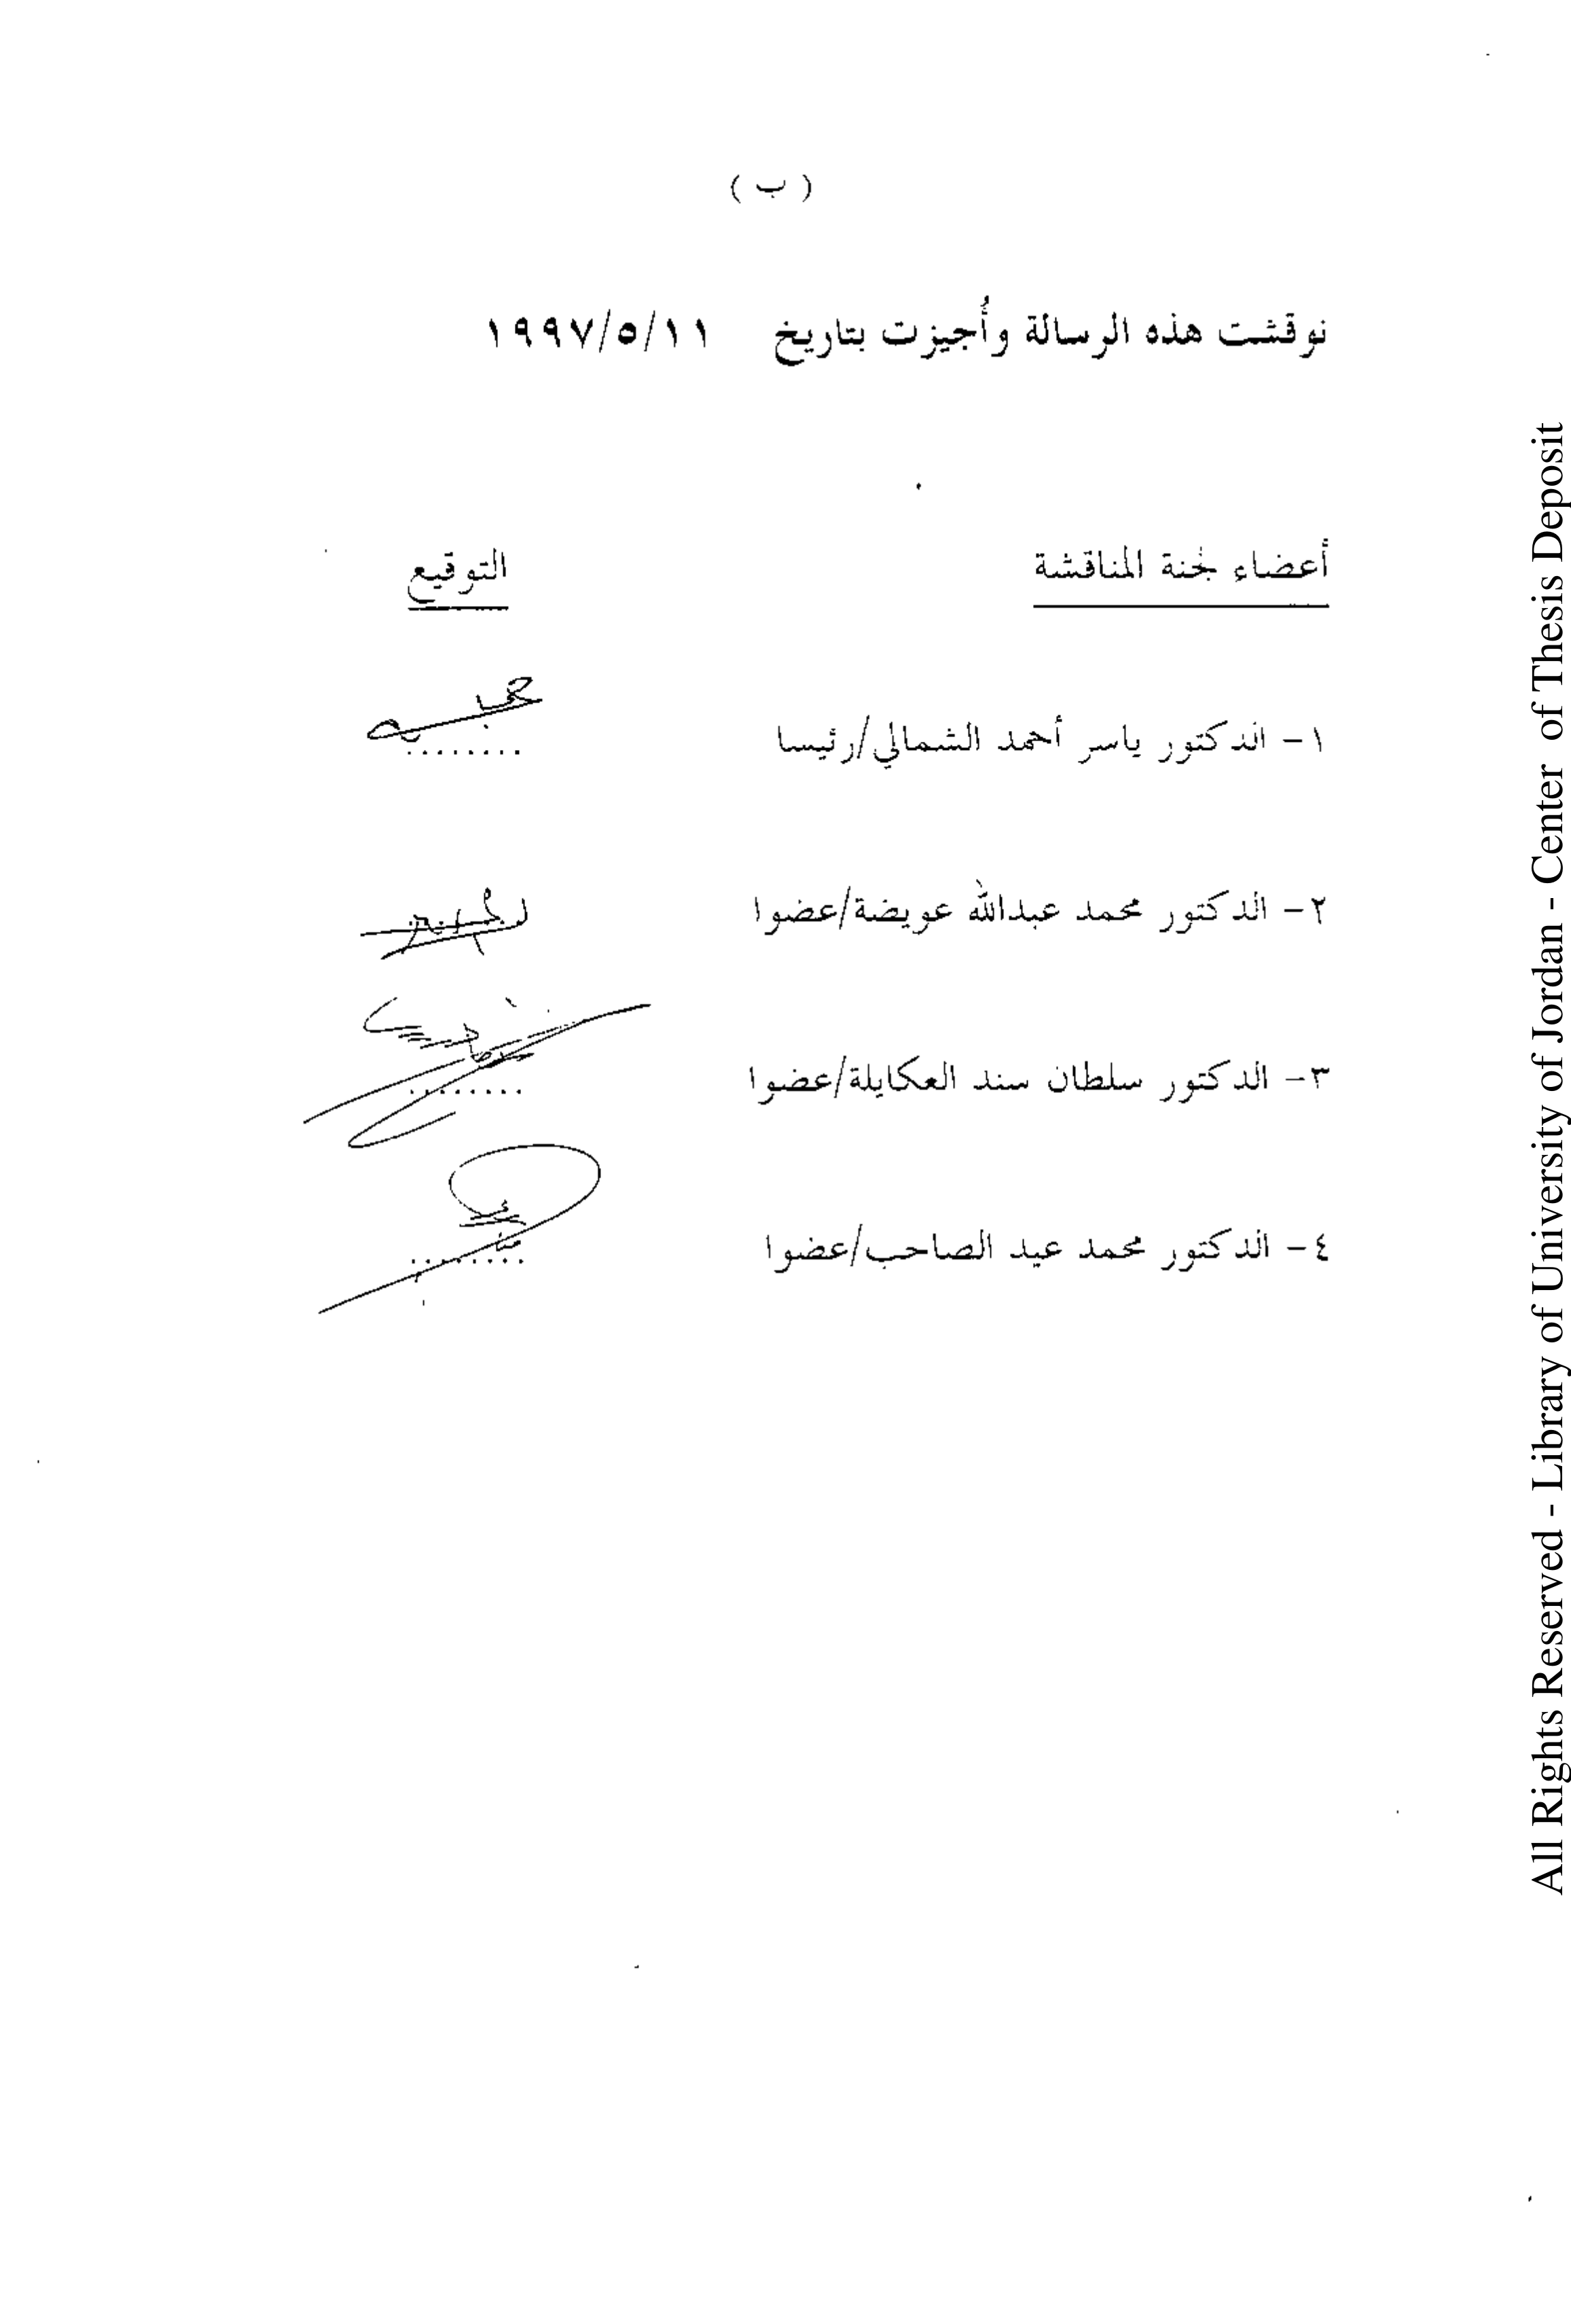 ( ب )
نوقشت هذه الرسالة وأُجيزت بتاريخ ١٩٩٧/٥/١١
أعضاء لجنة المناقشة التوقيع
١- الدكتور ياسر أحمد الشمالي/رئيسا ........
٢- الدكتور محمد عبدالله عويضة/عضوا
٣- الدكتور سلطان سند العكايلة/عضوا ........
٤- الدكتور محمد عيد الصاحب/عضوا ........
All Rights Reserved - Library of University of Jordan - Center of Thesis Deposit